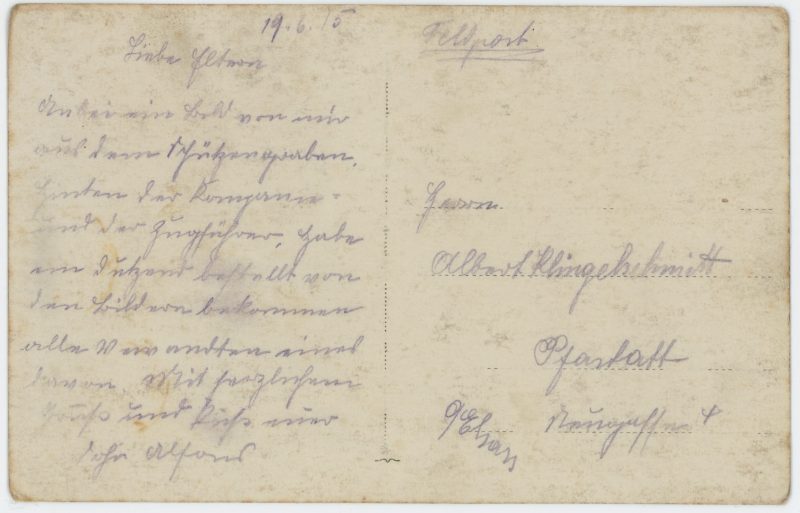 19.6.15
Liebe Eltern
Anbei ein Bild von mir
aus dem Schützengraben,
hinten der Kompanie-
und der Zugführer, habe
ein Dutzend bestellt von
den Bildern bekommen
alle Verwandten eines
davon. Mit herzlichem
Gruß und Kuß euer
Sohn Alfons
Feldpost
Herrn
Albert Klingelschmitt
Pfastatt
Neugasse 4
O/Elsass